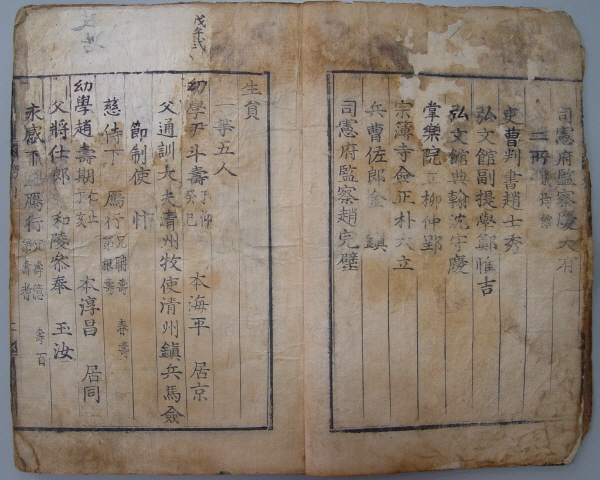 司憲府監察慶大有
二所
吏曹判書趙士秀
弘文館副提學鄭惟吉
弘文館典翰沈守慶
掌樂院正柳仲郢
宗簿寺僉正朴大立
兵曹佐郎金鎭
司憲府監察趙完璧
戊午式
生員
一等五人
幼學尹斗壽 子仰 癸巳 本海平 居京
父通訓大夫淸州牧使淸州鎭兵馬僉
節制使 忭
慈侍下 鴈行 兄聃壽 弟根壽 春壽
幼學趙壽期 丁亥 本淳昌 居同
父將仕郎 和陵參奉 玉汝
永感下 鴈行 兄壽億 弟壽耆 壽百